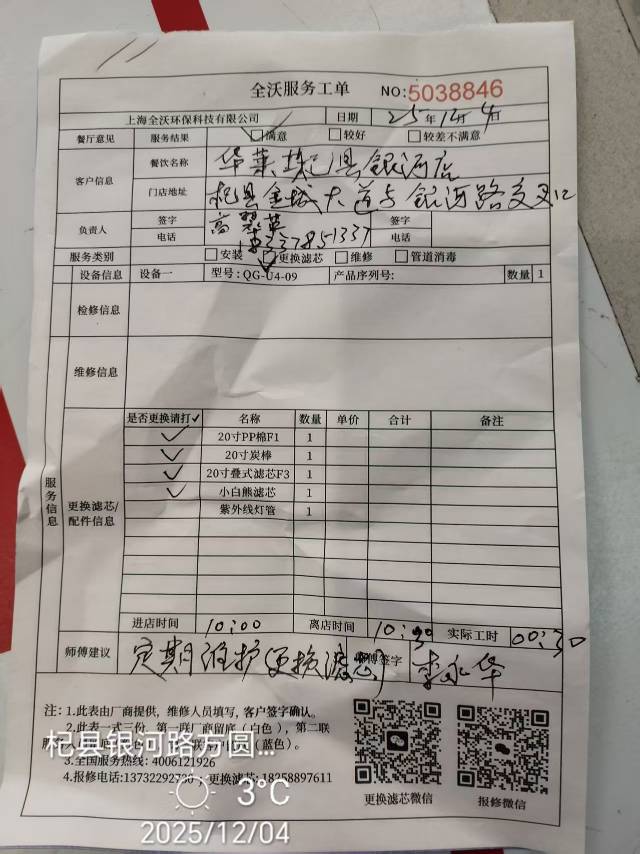 全沃服务工单 NO:5038846
上海全沃环保科技有限公司 日期 25年12月4日
餐厅意见 服务结果 满意 较好 较差不满意
客户信息 餐饮名称 华莱士杞县银河店
门店地址 杞县金城大道与银河路交叉口
负责人 签字 高翠英 签字
电话 电话
服务类别 安装 更换滤芯 维修 管道消毒
设备信息 设备一 型号:QG-U4-09 产品序列号: 数量 1
检修信息
维修信息
服务信息
更换滤芯/配件信息
是否更换请打✓ 名称 数量 单价 合计 备注
✓ 20寸PP棉F1 1
✓ 20寸炭棒 1
✓ 20寸叠式滤芯F3 1
✓ 小白熊滤芯 1
紫外线灯管 1
进店时间 10:00 离店时间 10:30 实际工时 00:30
师傅建议 定期维护更换滤芯 师傅签字 李永华
注：1.此表由厂商提供，维修人员填写，客户签字确认。
2.此表一式三份，第一联厂商留底（白色），第二联
（蓝色）。
3.全国服务热线：4006121926
4.报修电话:13732292780 更换滤芯:18258897611
更换滤芯微信 报修微信
杞县银河路方圆...
3°C
2025/12/04